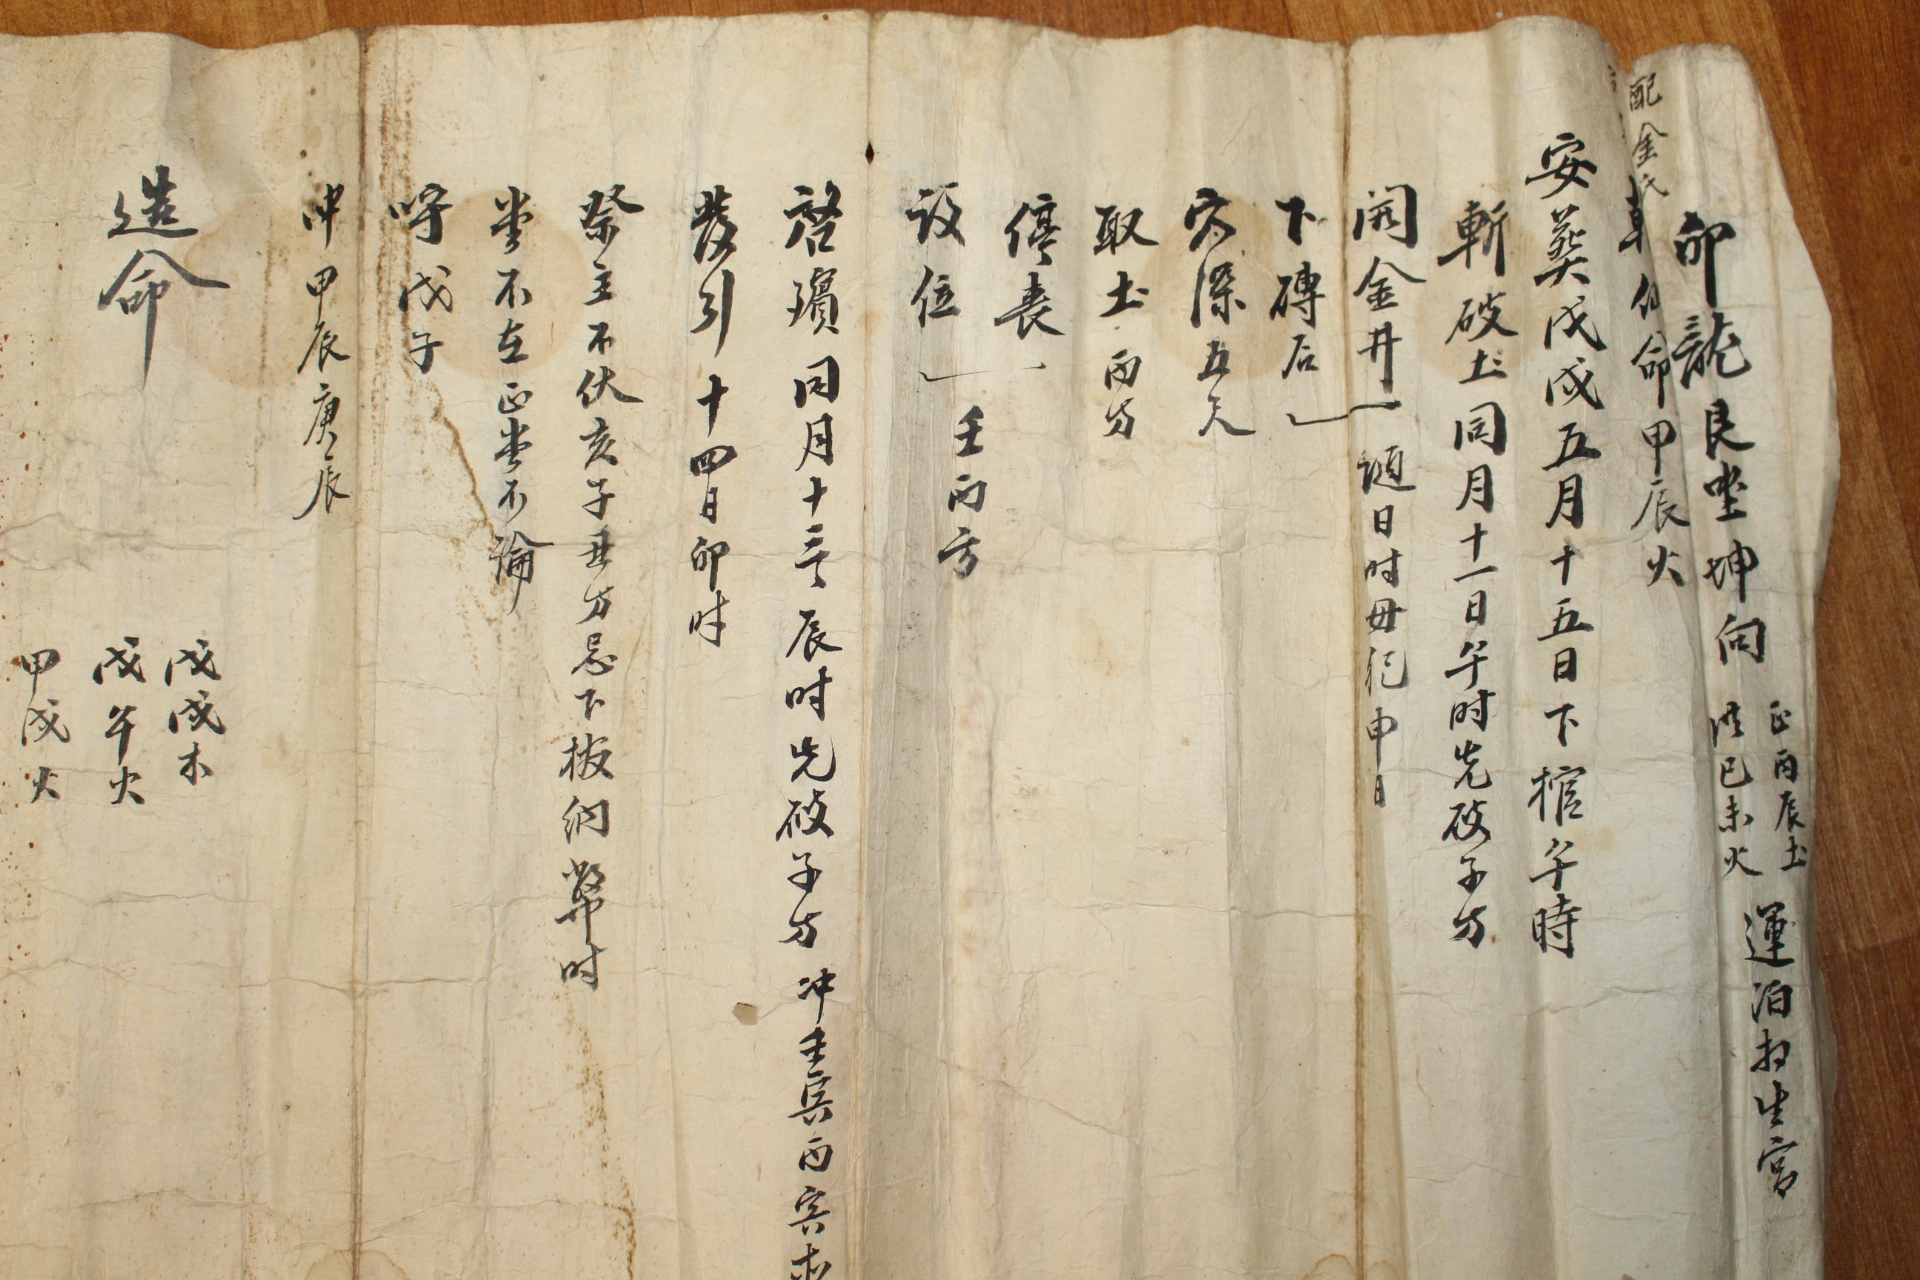 卯龍艮坐坤向
正丙辰土
洪己未火
運泊相生宮
配金氏
乾仙命甲辰火
安葬戊戌五月十五日下棺午時
斬破土同月十一日午时先破子方
開金井
下磚后
隨日时毋犯申日
穴深五尺
取土丙方
停喪
設位
壬丙方
啓殯同月十三辰时先破子方冲壬寅丙寅
發引十四日卯时
祭主不伏亥子丑方忌下棺納幣时
堂不在正堂不論
呼戊子
冲甲辰庚辰
造命
戊戌木
戊午火
甲戌火